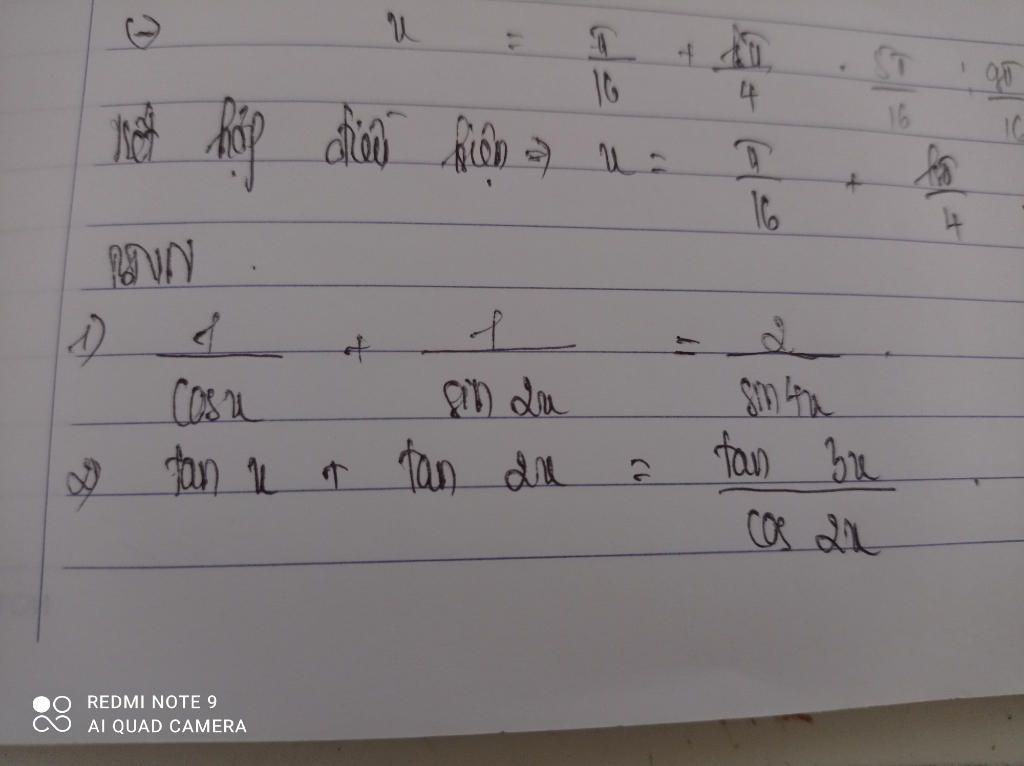 ⇔ x = π/16 + kπ/4 . 5π/16 ; 9π/16
Kết hợp điều kiện ⇒ x = π/16 + kπ/4
BTVN .
1) 1/cosx + 1/sin 2x = 2/sin4x .
2) tan x + tan 2x = tan 3x/cos 2x .
REDMI NOTE 9
AI QUAD CAMERA